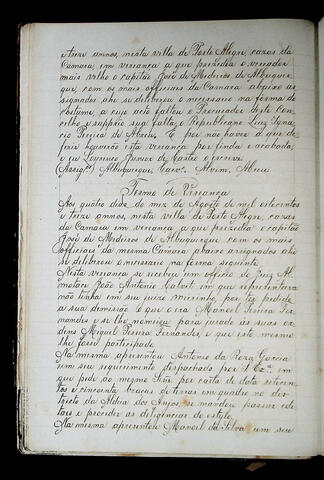 e treze annos, nesta villa de Porto Alegre, cazas da
Camara, em vereança a que prezedia o vereador
mais velho o capitão José de Medeiros de Albuquer
que, com os mais officiaes da Camara abaixo as
signados ahi se deliberou o necessario na forma do
costume, a cujo acto faltou o Procurador deste con
celho e supprio sua falta o Republicano Luiz Igna
cio Pereira de Abreu. E por não haver a que de
ferir houverão esta vereança por finda e acabada,
e eu Lourenço Junior de Castro o escrevi
(Assig.) Albuquerque, Alvim, Abreu
Termo de Vereança
Aos quatro dias do mez de Agosto de mil oitocentos
e treze annos, nesta villa de Porto Alegre, cazas
da Camara em vereança a que prezedia o capitão
José de Medeiros de Albuquerque com os mais
officiaes da mesma Camara abaixo assignados ahi
se deliberou o necessario na forma seguinte.
Nesta vereança se recebeu um officio do Juiz Al
motace João Antonio em que reprezentava
não tinha em seu juizo meirinho, por ter pedido
a sua demissão e que o era Manoel Pereira Fer
nandes e se lhe nomeou para jurado ás suas or
dens Miguel Pereira Fernandes, o que este mesmo
lhe fosse participado.
Na mesma aprezentou Antonio da Roza Garcia
um seu requerimento despachado por S. Ex.ª em
que pede ao mesmo Snr. por carta de data setecen
tos e cincoenta braças de terras em quadro no des
tricto da Aldea dos Anjos, se mandou passar edi
taes e proceder as diligencias do estylo.
Na mesma aprezentou Manoel da Silva um seu